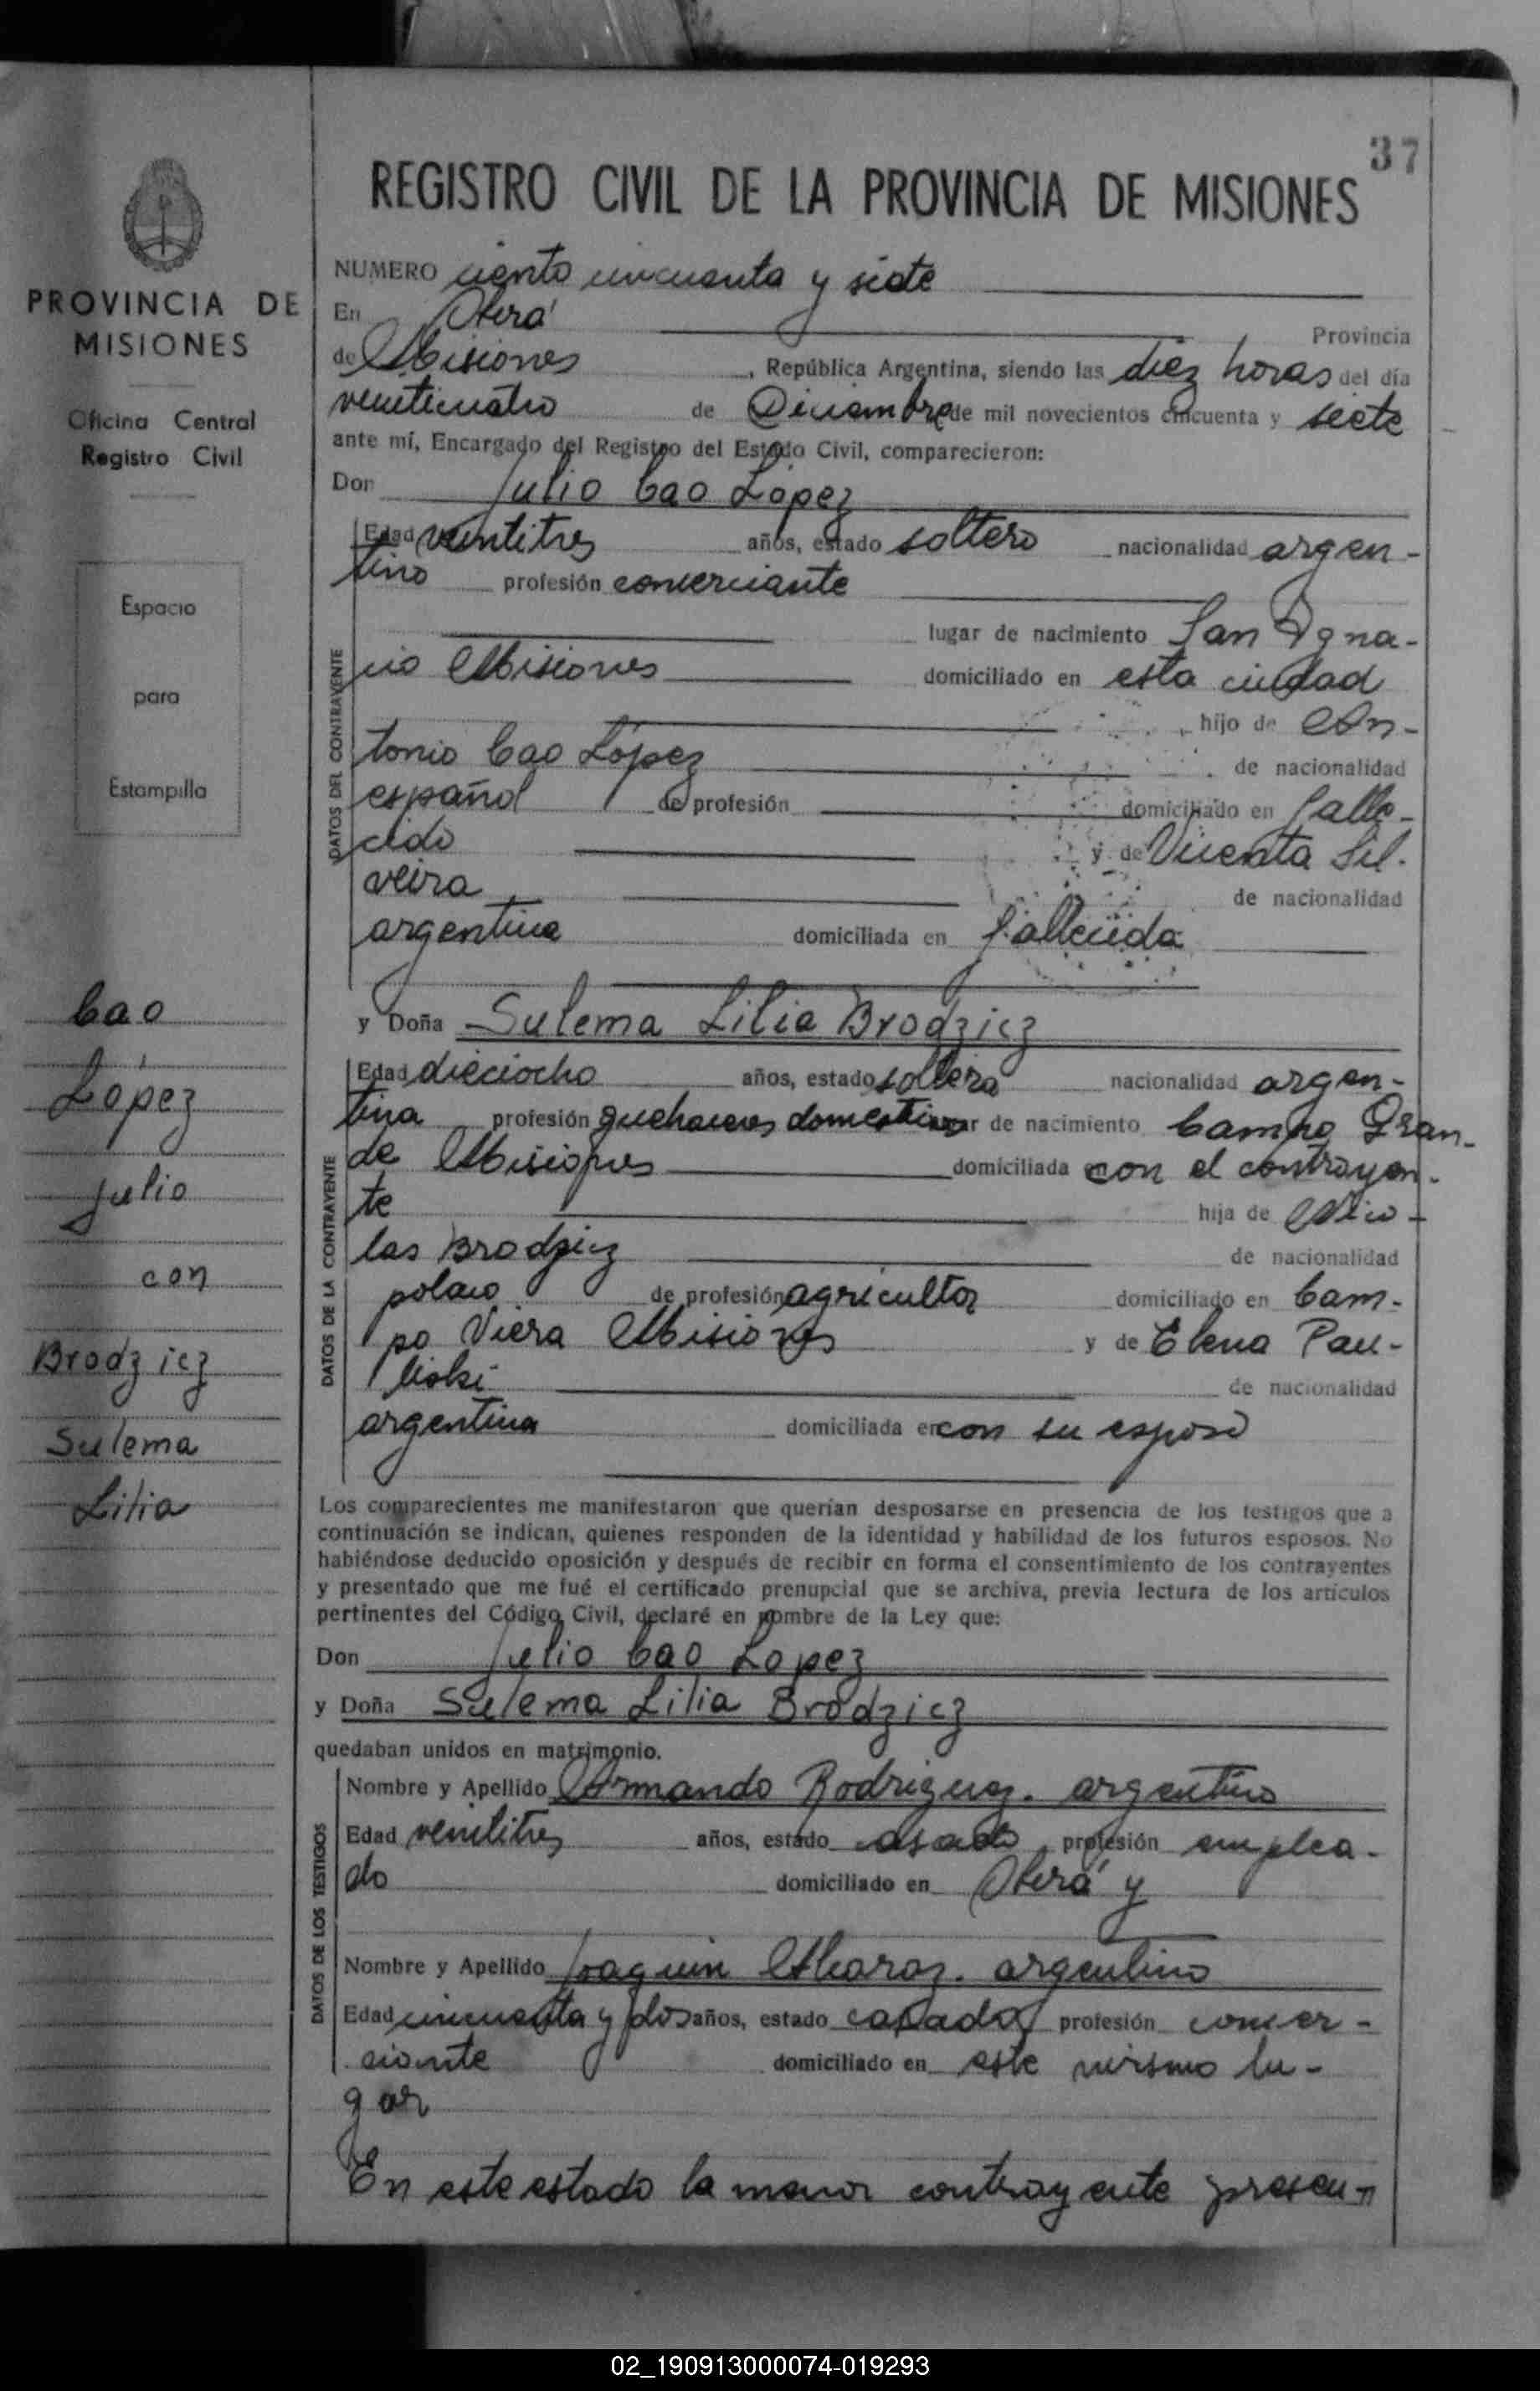 37
REGISTRO CIVIL DE LA PROVINCIA DE MISIONES
PROVINCIA DE
MISIONES
Oficina Central
Registro Civil
Espacio
para
Estampilla
Cao
López
Julio
con
Brodzicz
Sulema
Lilia
NUMERO ciento cincuenta y siete
En Oberá Provincia
de Misiones, República Argentina, siendo las diez horas del día
veinticuatro de Diciembre de mil novecientos cincuenta y siete
ante mí, Encargado del Registro del Estado Civil, comparecieron:
Don Julio Cao López
DATOS DEL CONTRAYENTE
Edad veintitres años, estado soltero nacionalidad argen-
tino profesión comerciante
lugar de nacimiento San Igna-
cio Misiones domiciliado en esta ciudad
hijo de An-
tonio Cao López de nacionalidad
español de profesión domiciliado en falle-
cido y de Vicenta Sil-
veira de nacionalidad
argentina domiciliada en fallecida
y Doña Sulema Lilia Brodzicz
DATOS DE LA CONTRAYENTE
Edad dieciocho años, estado soltera nacionalidad argen-
tina profesión quehaceres domesticos lugar de nacimiento Campo Gran-
de Misiones domiciliada con el contrayen-
te hija de Nico-
las Brodzicz de nacionalidad
polaco de profesión agricultor domiciliado en Cam-
po Viera Misiones y de Elena Pau-
liski de nacionalidad
argentina domiciliada en con su esposo
Los comparecientes me manifestaron que querían desposarse en presencia de los testigos que a
continuación se indican, quienes responden de la identidad y habilidad de los futuros esposos. No
habiéndose deducido oposición y después de recibir en forma el consentimiento de los contrayentes
y presentado que me fué el certificado prenupcial que se archiva, previa lectura de los artículos
pertinentes del Código Civil, declaré en nombre de la Ley que:
Don Julio Cao Lopez
y Doña Sulema Lilia Brodzicz
quedaban unidos en matrimonio.
DATOS DE LOS TESTIGOS
Nombre y Apellido Armando Rodriguez. argentino
Edad veintitres años, estado casado profesión emplea-
do domiciliado en Oberá y
Nombre y Apellido Joaquin Alcaraz. argentino
Edad cincuenta y dos años, estado casado profesión comer-
ciante domiciliado en este mismo lu-
gar
En este estado la menor contrayente presen-
02_190913000074-019293